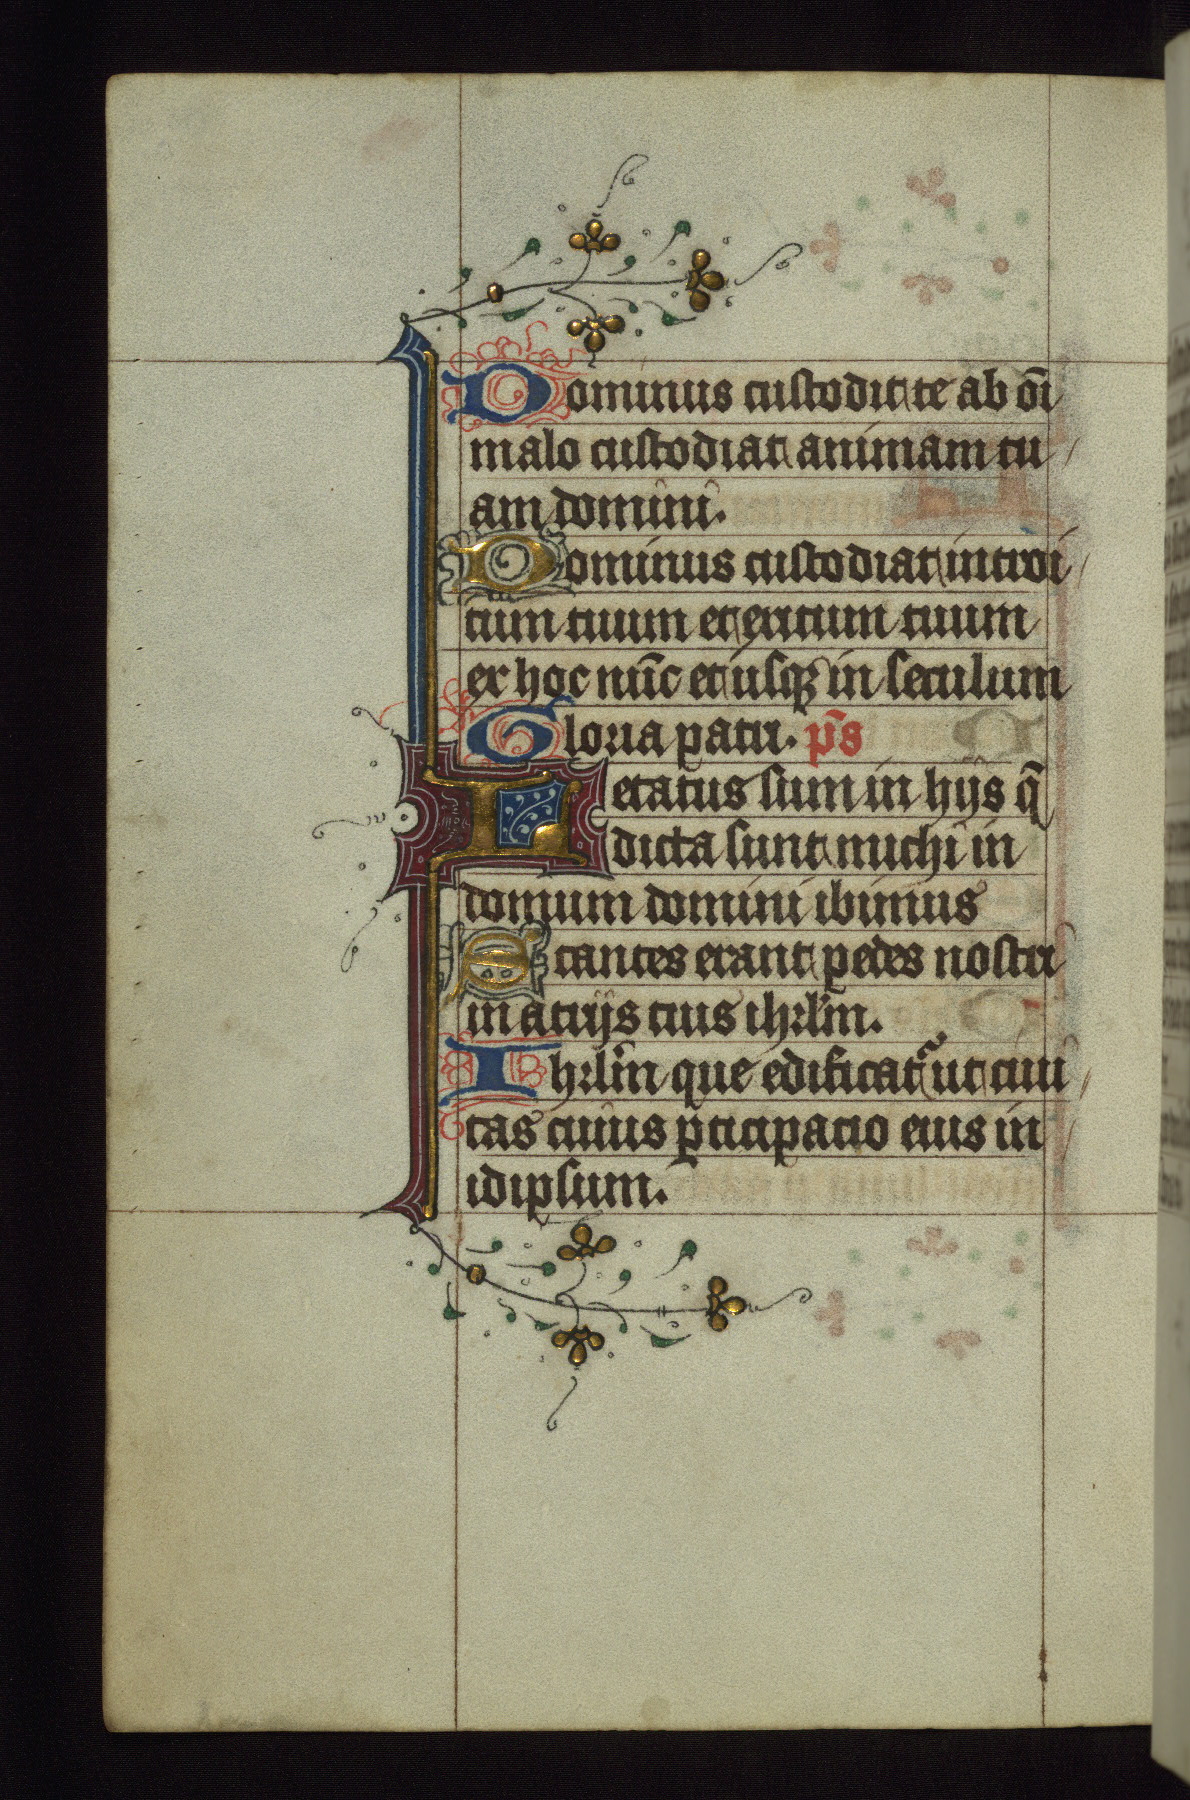 Dominus custodit te ab oı̄
malo custodiat animam tu
am domini.
Dominus custodiat introi
tum tuum et exitum tuum
ex hoc nūc et usqȝ in seculum
Gloria patri. p̄s
Letatus sum in hijs q̄
dicta sunt michi in
domum domini ibimus
Stantes erant pedes nostri
in atrijs tuis ihrl̄m.
Ihrl̄m que edificatᷣ ut ciui
tas cuius ꝑticipacio eius in
idipsum.